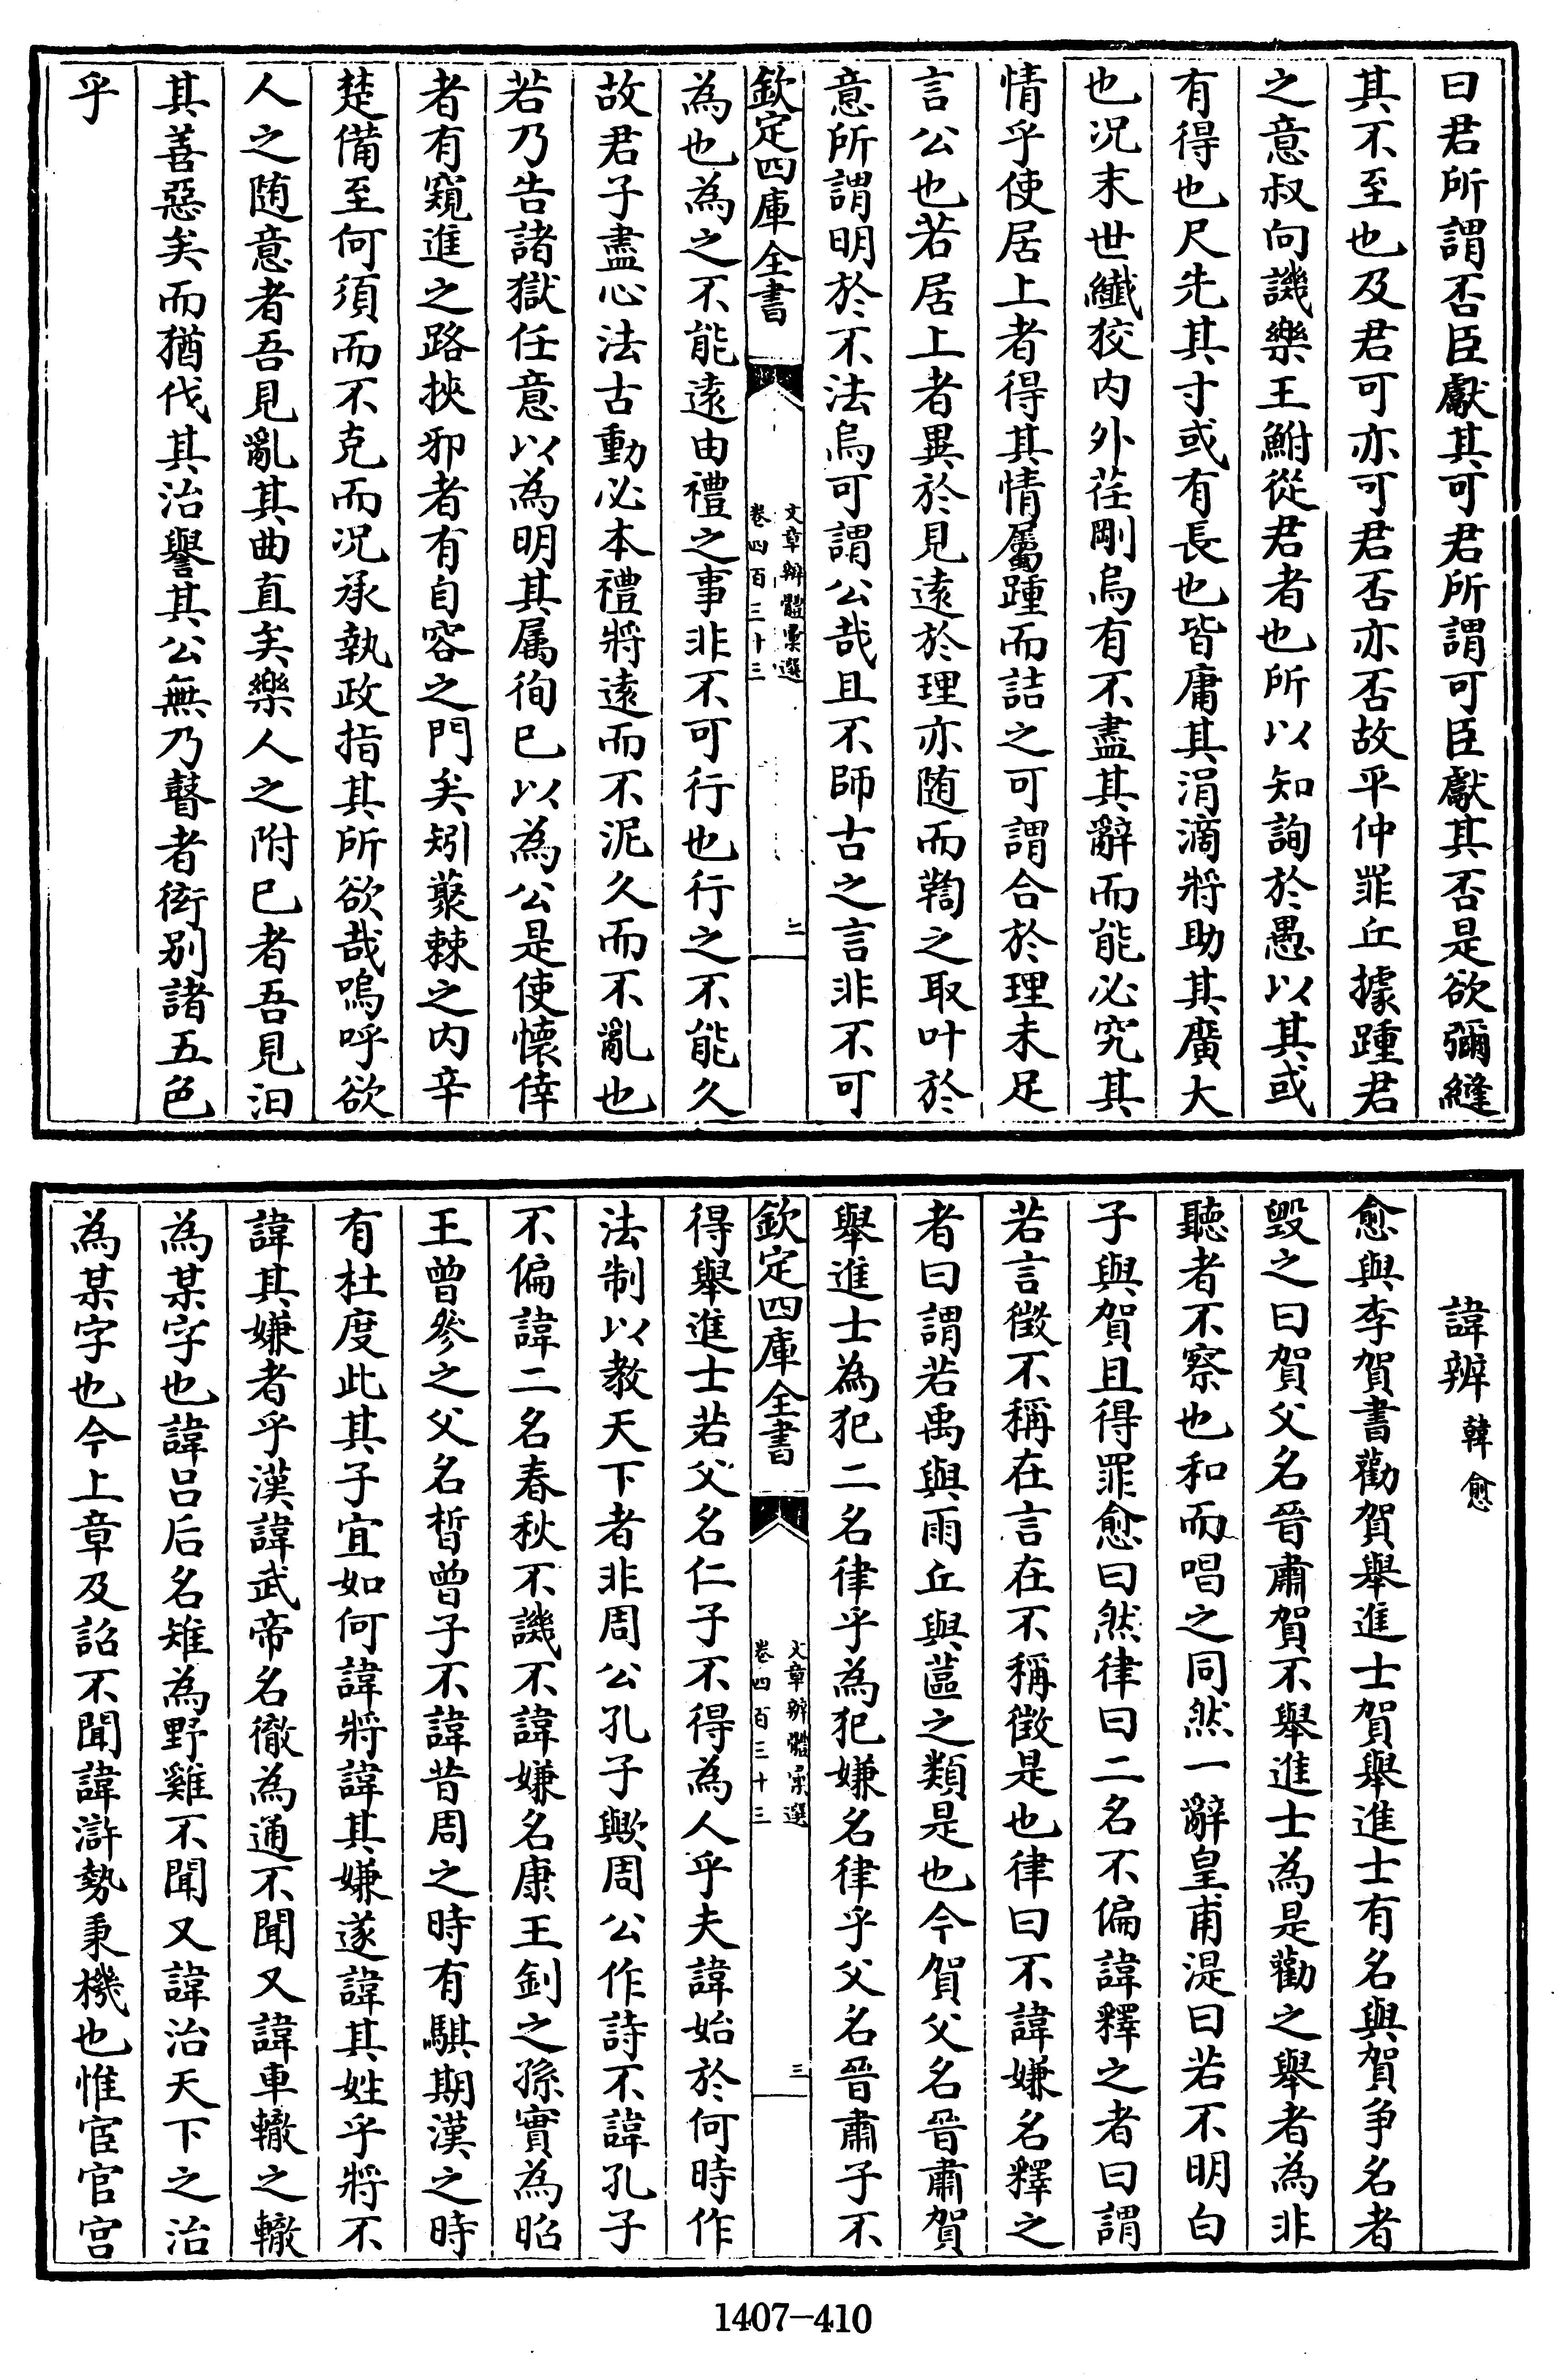 曰君所謂否臣獻其可君所謂可臣獻其否是欲彌縫
其不至也及君可亦可君否亦否故平仲罪丘據踵君
之意叔向譏樂王鮒從君者也所以知詢於愚以其或
有得也尺先其寸或有長也皆庸其涓滴將助其廣大
也况末世纎狡内外荏剛烏有不盡其辭而能必究其
情乎使居上者得其情屬踵而詰之可謂合於理未足
言公也若居上者異於見遠於理亦随而鞫之取叶於
意所謂明於不法烏可謂公哉且不師古之言非不可
欽定四庫全書
文章辨體彙選
卷四百三十三
二
為也為之不能遠由禮之事非不可行也行之不能久
故君子盡心法古動必本禮將遠而不泥久而不亂也
若乃告諸獄任意以為明其属徇已以為公是使懷倖
者有窺進之路挾邪者有自容之門矣矧藂棘之内辛
楚備至何須而不克而况承執政指其所欲哉嗚呼欲
人之随意者吾見亂其曲直矣樂人之附已者吾見汨
其善惡矣而猶伐其治譽其公無乃瞽者衒别諸五色
乎
諱辨
韓愈
愈與李賀書勸賀舉進士賀舉進士有名與賀争名者
毁之曰賀父名晉肅賀不舉進士為是勸之舉者為非
聽者不察也和而唱之同然一辭皇甫湜曰若不明白
子與賀且得罪愈曰然律曰二名不偏諱釋之者曰謂
若言徵不稱在言在不稱徵是也律曰不諱嫌名釋之
者曰謂若禹與雨丘與蓲之類是也今賀父名晉肅賀
舉進士為犯二名律乎為犯嫌名律乎父名晉肅子不
欽定四庫全書
文章辨體彙選
卷四百三十三
三
得舉進士若父名仁子不得為人乎夫諱始於何時作
法制以教天下者非周公孔子歟周公作詩不諱孔子
不偏諱二名春秋不譏不諱嫌名康王釗之孫實為昭
王曾參之父名晳曾子不諱昔周之時有騏期漢之時
有杜度此其子宜如何諱將諱其嫌遂諱其姓乎將不
諱其嫌者乎漢諱武帝名徹為通不聞又諱車轍之轍
為某字也諱吕后名雉為野雞不聞又諱治天下之治
為某字也今上章及詔不聞諱滸勢秉機也惟宦官宫
1407-410